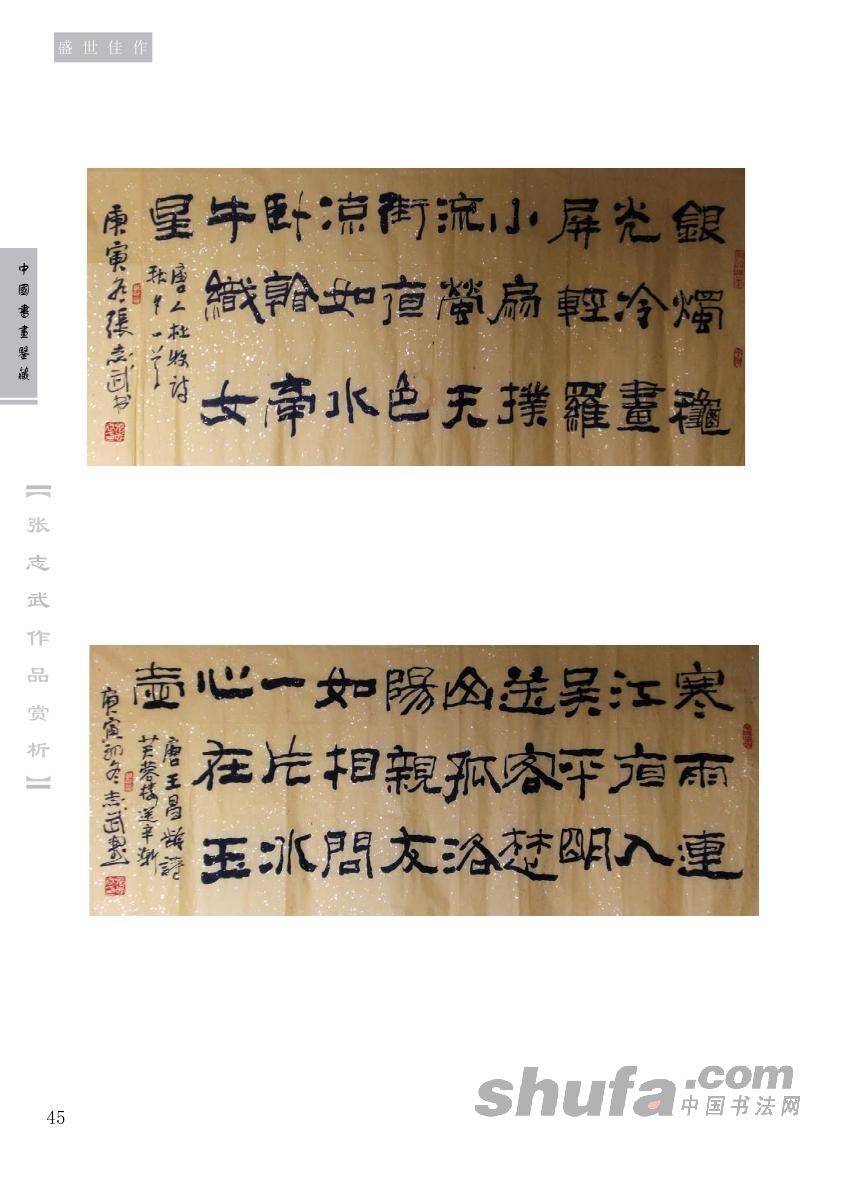 盛世佳作
中國書畫鑒藏
【张志武作品赏析】
銀燭穐
光冷畫
屏輕羅
小扇撲
流螢天
街夜色
凉如水
卧看牽
牛織女
星
唐人杜牧詩
秋夕一首
庚寅冬張志武书
寒雨連
江夜入
吴平明
送客楚
山孤洛
陽親友
如相問
一片冰
心在玉
壺
唐王昌齡詩
芙蓉樓送辛漸
庚寅初冬志武書
shufa.com
中国书法网
45